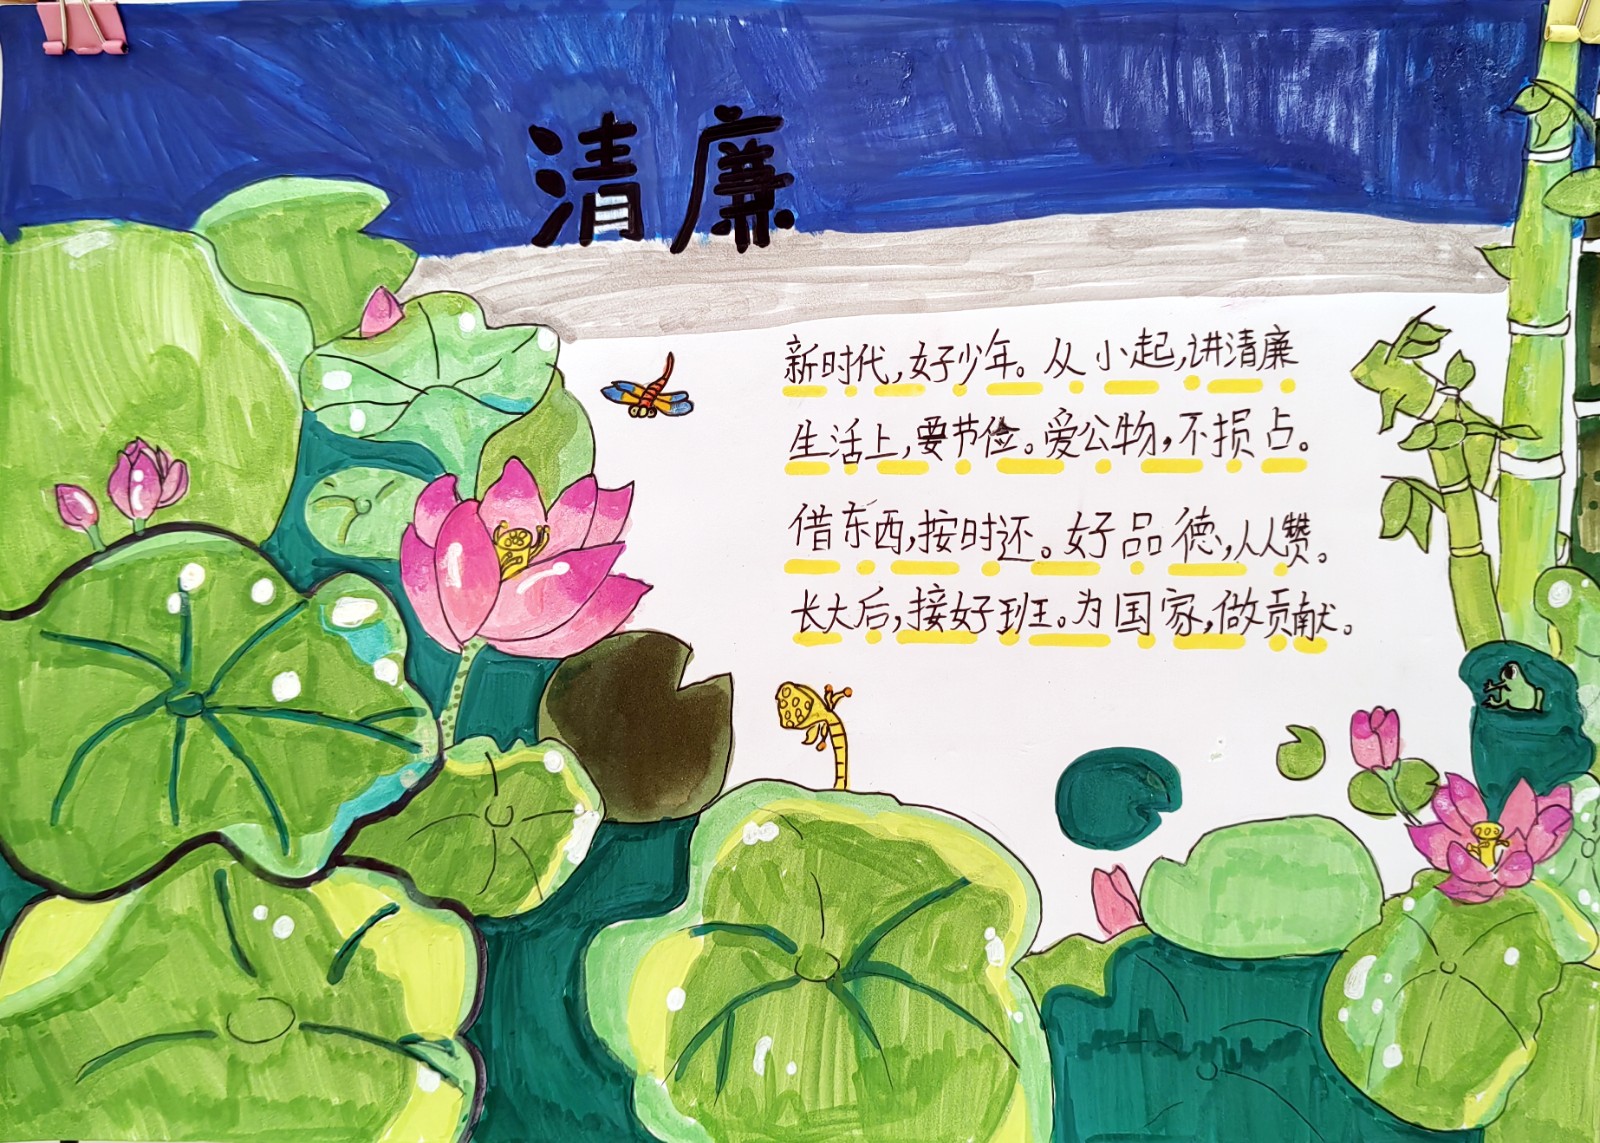 清廉
新时代,好少年。从小起,讲清廉
生活上,要节俭。爱公物,不损占。
借东西,按时还。好品德,人人赞。
长大后,接好班。为国家,做贡献。